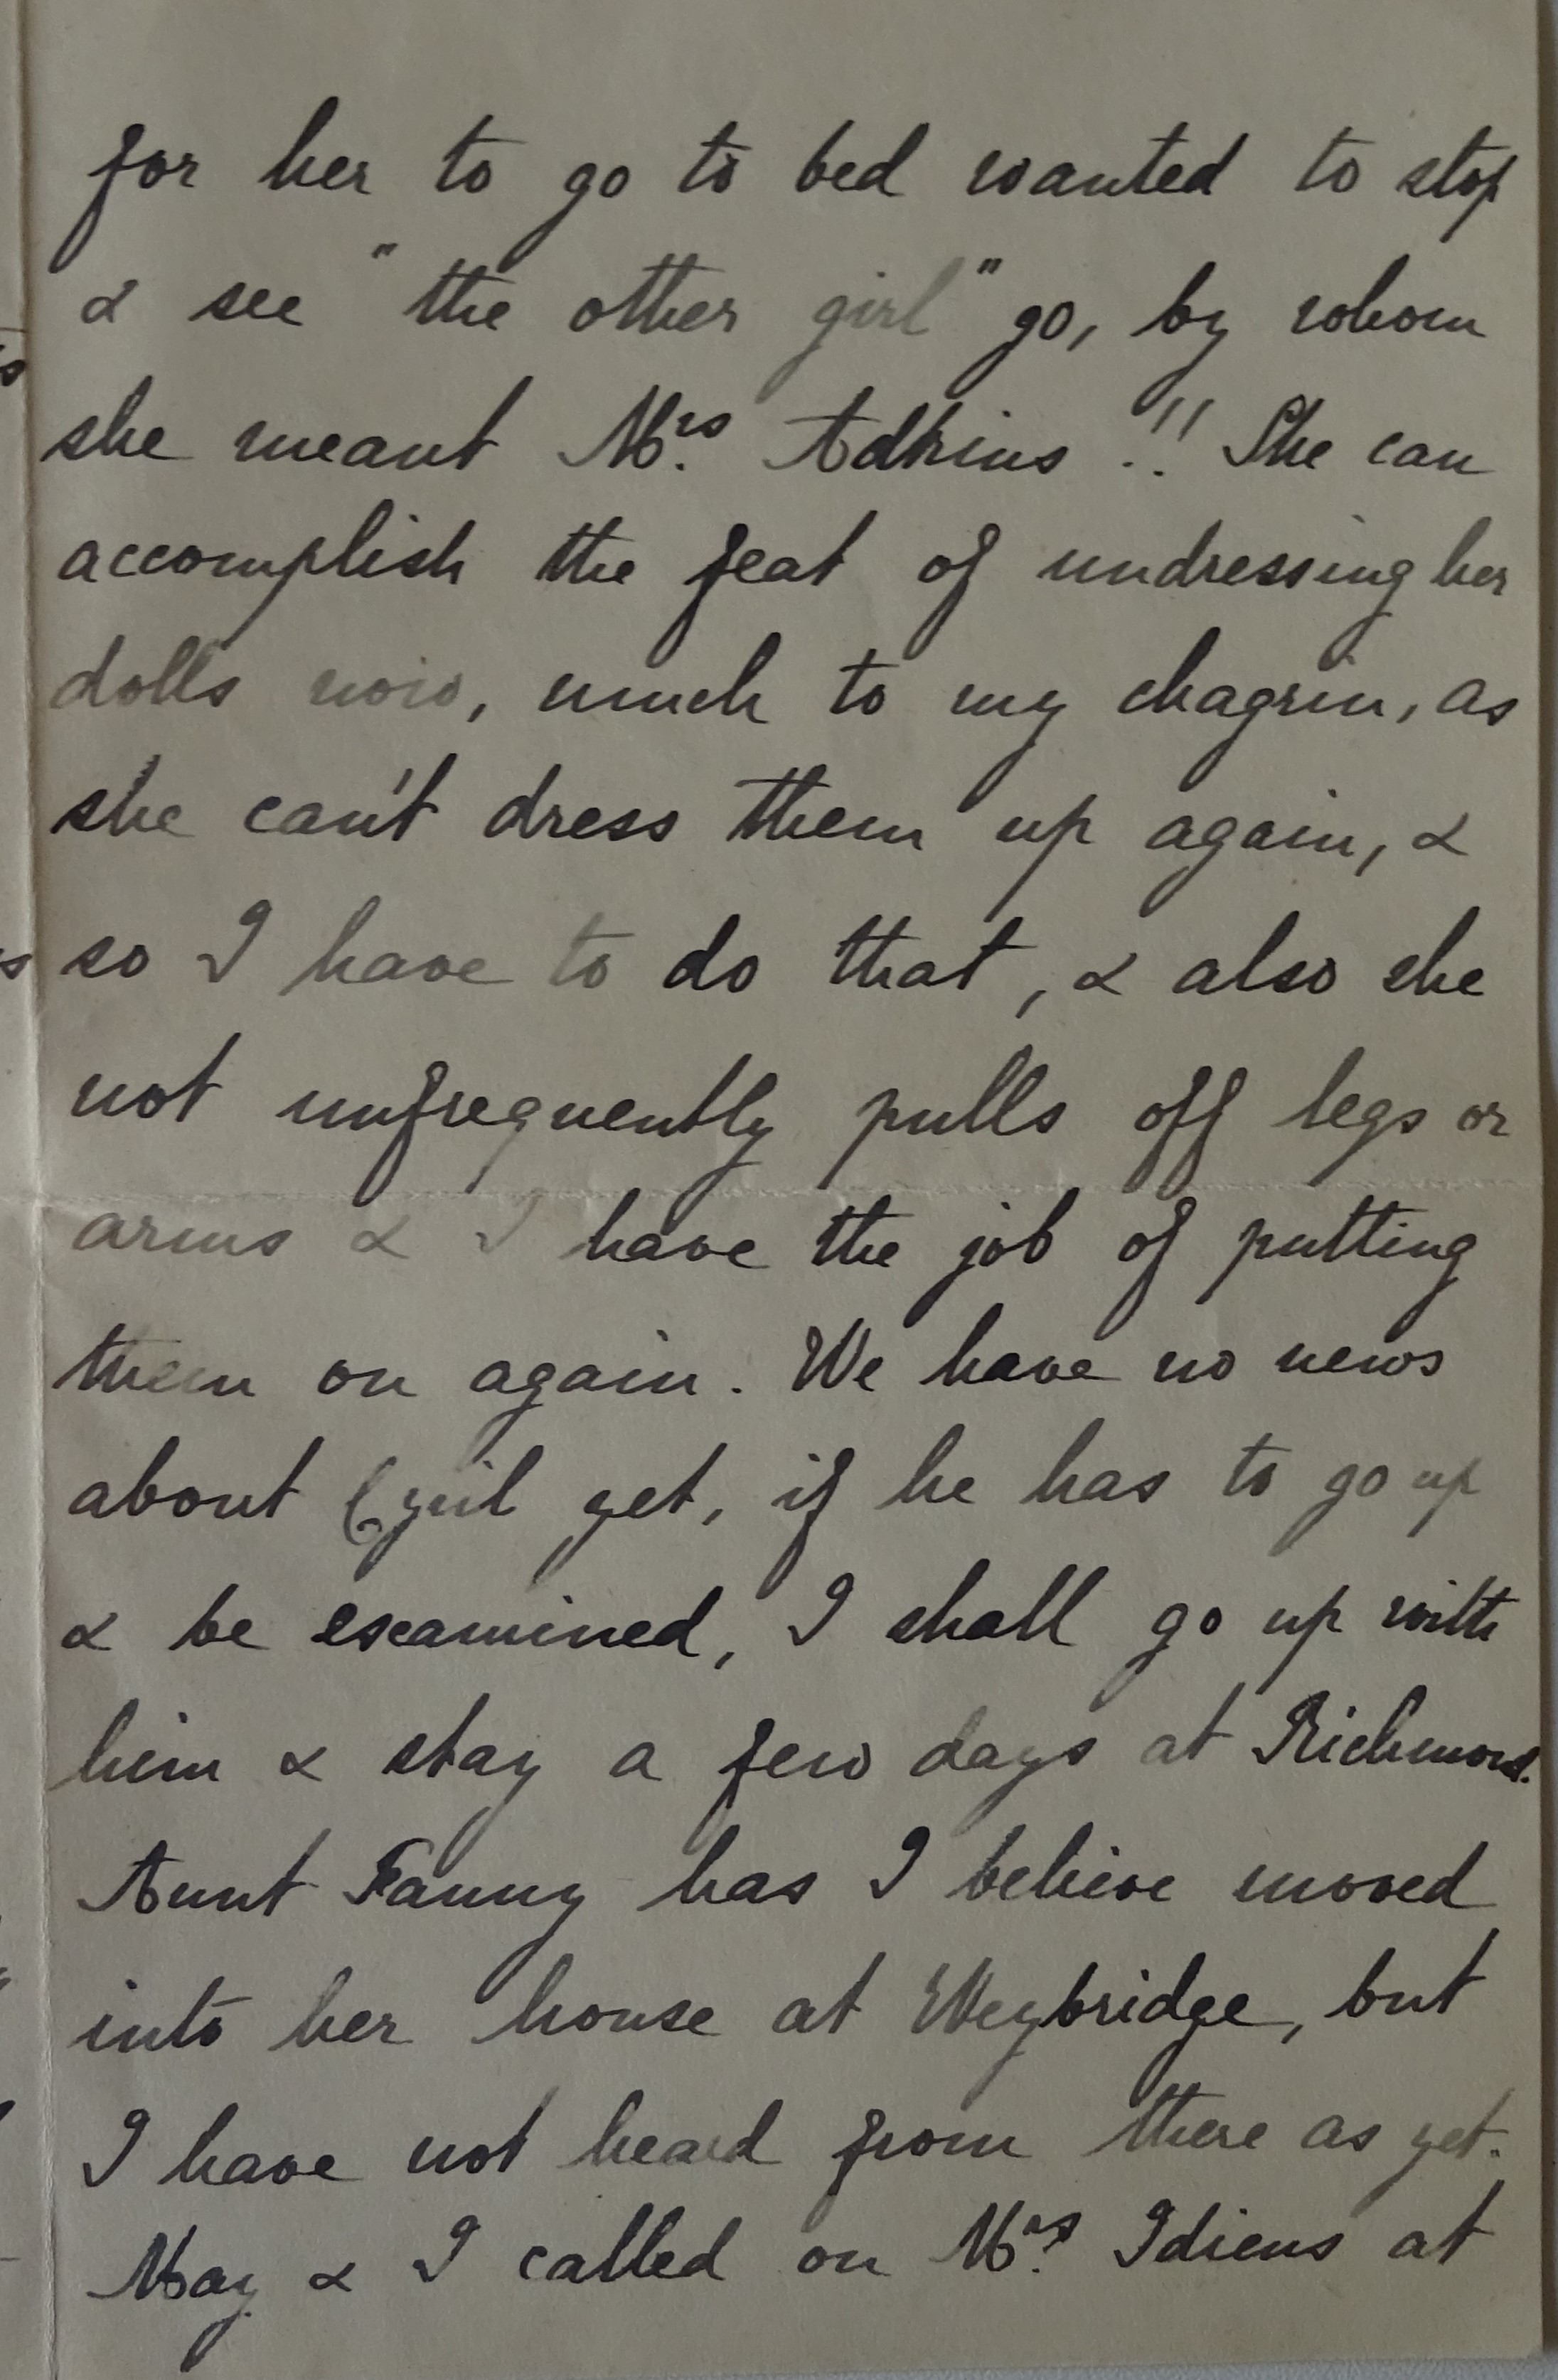 for her to go to bed wanted to stop
& see "the other girl" go, by whom
she meant Mrs. Adkins !! She can
accomplish the feat of undressing her
dolls now, much to my chagrin, as
she can't dress them up again, &
so I have to do that, & also she
not unfrequently pulls off legs or
arms & I have the job of putting
them on again. We have no news
about Cyril yet, if he has to go up
& be examined, I shall go up with
him & stay a few days at Richmond.
Aunt Fanny has I believe moved
into her house at Weybridge, but
I have not heard from there as yet.
May & I called on Mrs. Idiens at